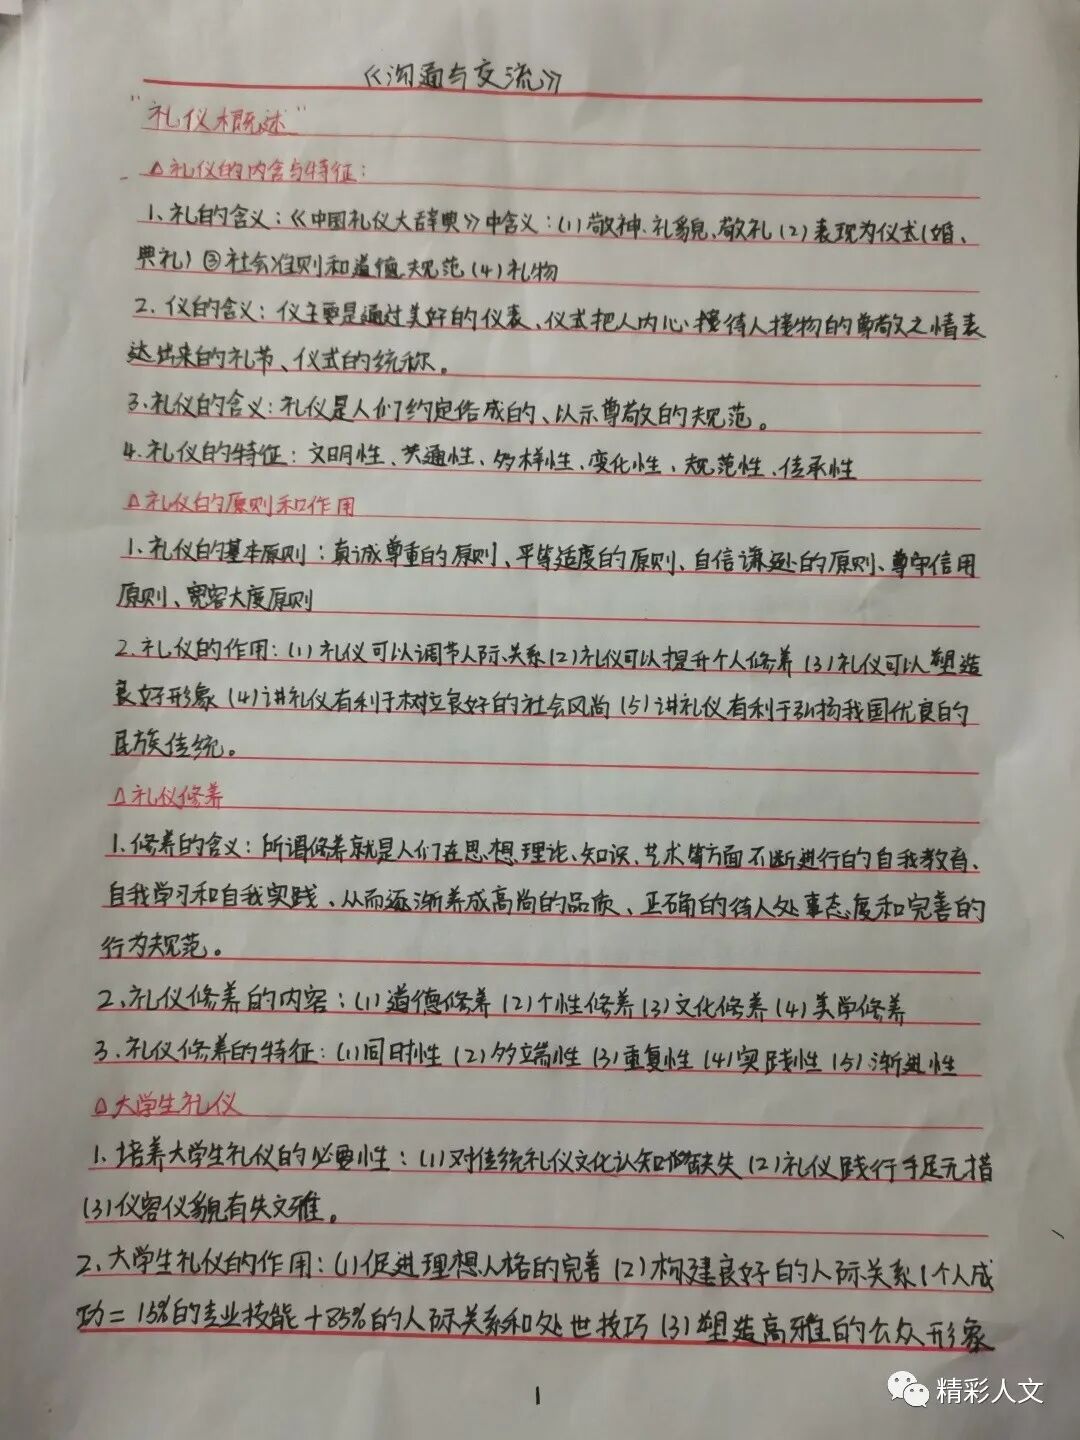 《沟通与交流》
"礼仪概述"
△礼仪的内含与特征:
1、礼的含义:《中国礼仪大辞典》中含义:(1)敬神、礼貌、敬礼(2)表现为仪式(婚、
典礼)③社会准则和道德规范(4)礼物
2、仪的含义:仪主要是通过美好的仪表、仪式把人内心接待人接物的尊敬之情表
达出来的礼节、仪式的统称。
3、礼仪的含义:礼仪是人们约定俗成的、以示尊敬的规范。
4、礼仪的特征:文明性、共通性、多样性、变化性、规范性、传承性
△礼仪的原则和作用
1、礼仪的基本原则:真诚尊重的原则、平等适度的原则、自信谦逊的原则、尊守信用
原则、宽容大度原则
2、礼仪的作用:(1)礼仪可以调节人际关系(2)礼仪可以提升个人修养(3)礼仪可以塑造
良好形象(4)讲礼仪有利于树立良好的社会风尚(5)讲礼仪有利于弘扬我国优良的
民族传统。
△礼仪修养
1、修养的含义:所谓修养就是人们在思想、理论、知识、艺术等方面不断进行的自我教育、
自我学习和自我实践、从而逐渐养成高尚的品质、正确的待人处事态度和完善的
行为规范。
2、礼仪修养的内容:(1)道德修养(2)个性修养(3)文化修养(4)美学修养
3、礼仪修养的特征:(1)同时性(2)多端性(3)重复性(4)实践性(5)渐进性
△大学生礼仪
1、培养大学生礼仪的必要性:(1)对传统礼仪文化认知缺失(2)礼仪践行手足无措
(3)仪容仪貌有失文雅。
2、大学生礼仪的作用:(1)促进理想人格的完善(2)构建良好的人际关系(个人成
功=15%的专业技能+85%的人际关系和处世技巧(3)塑造高雅的公众形象
1
精彩人文